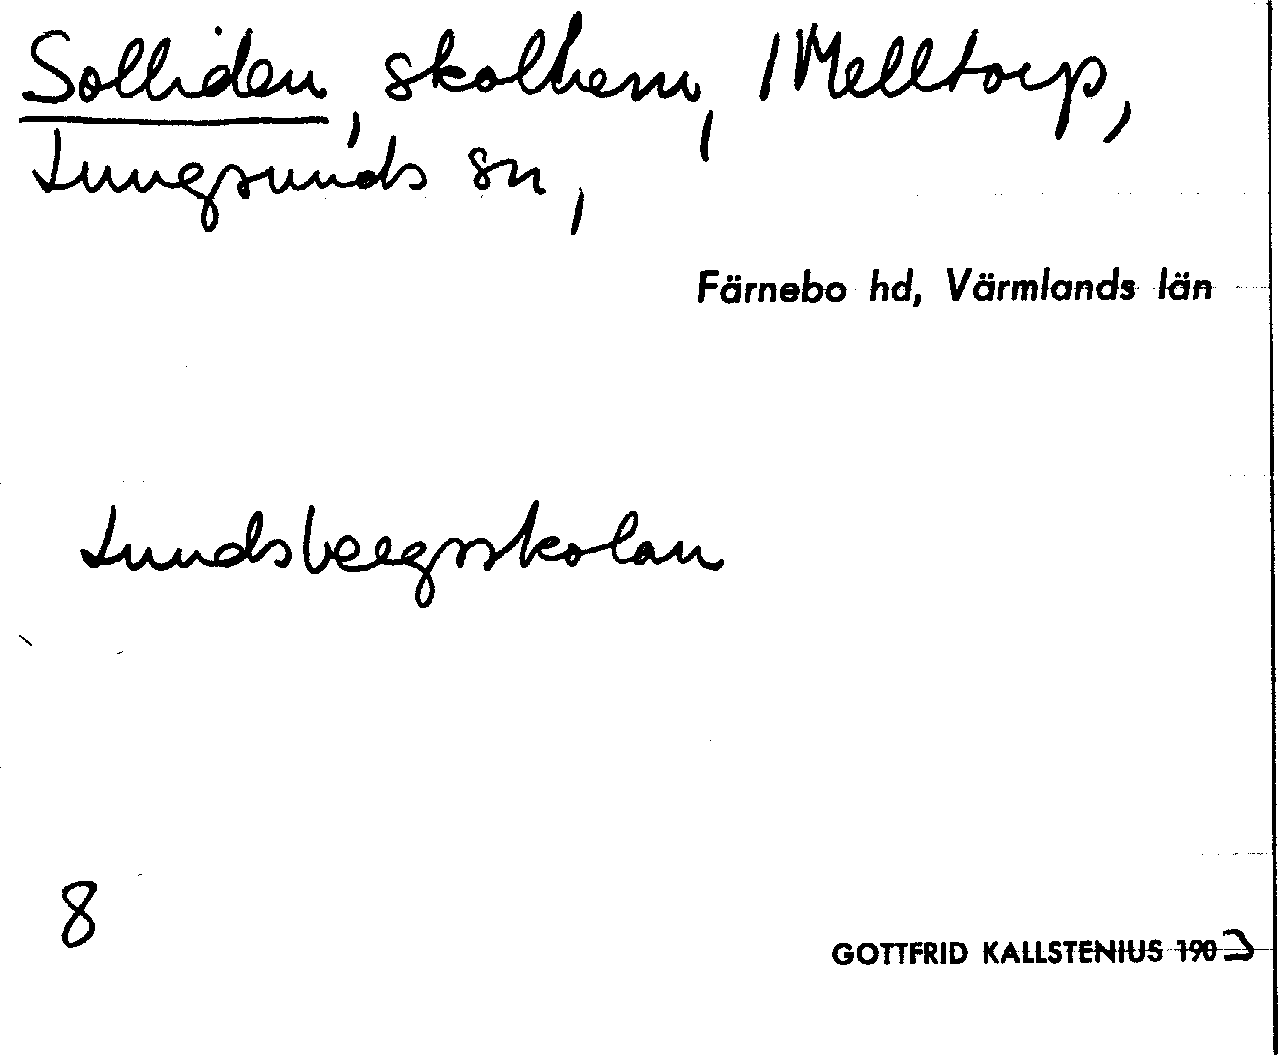 Solliden, skolhem, 1 Melltorp,
Lungsunds sn,
Färnebo hd, Värmlands län
Lundsbergsskolan
8
GOTTFRID KALLSTENIUS 190